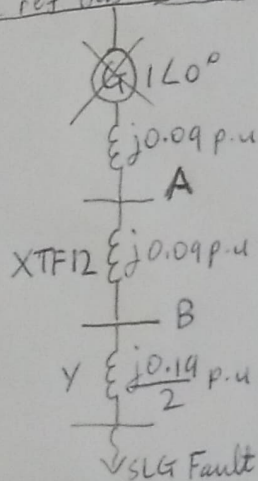 ref
G 1∠0°
j0.09 p.u
A
XTF12 j0.09 p.u
B
Y j0.19/2 p.u
SLG Fault